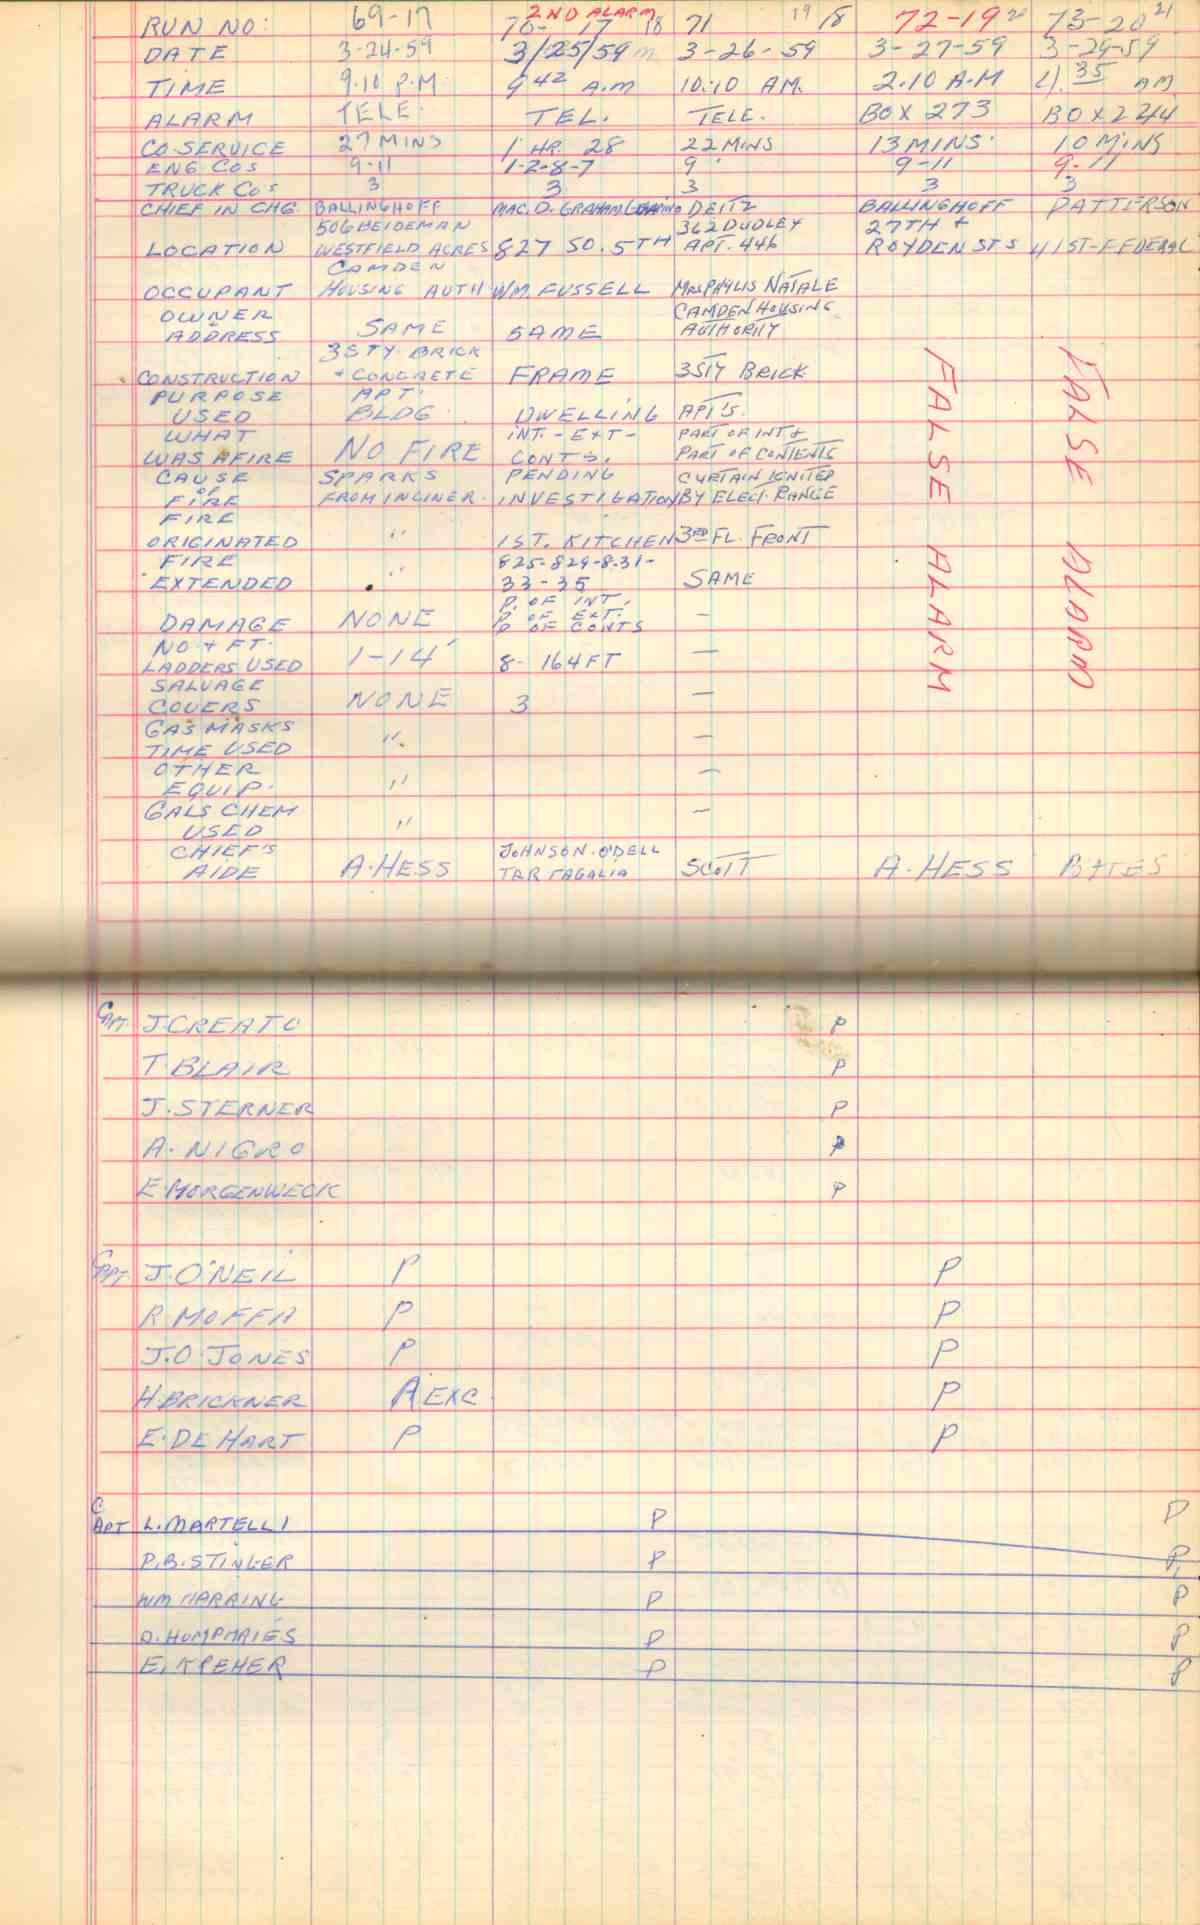 RUN NO: 69-17 2ND ALARM 70- 17 18 71 19 18 72-19 20 73-20 21
DATE 3-24-59 3/25/59 3-26-59 3-27-59 3-29-59
TIME 9.10 P.M. 9 42 A.M 10:10 AM. 2.10 A.M 4.35 AM
ALARM TELE. TEL. TELE. BOX 273 BOX 244
CO. SERVICE 27 MINS 1 HR. 28 22 MINS 13 MINS. 10 MINS
ENG COS 9-11 1-2-8-7 9 9-11 9-11
TRUCK COS 3 3 3 3 3
CHIEF IN CHG. BALLINGHOFF MAC. D. GRAHAM DEITZ BALLINGHOFF PATTERSON
506 BEIDEMAN 362 DUDLEY 27TH +
LOCATION WESTFIELD ACRES 827 SO. 5TH APT. 446 ROYDEN STS 41ST-FEDERAL
CAMDEN
OCCUPANT HOUSING AUTH. WM. FUSSELL MRS PHYLIS NATALE
OWNER CAMDEN HOUSING
ADDRESS SAME SAME AUTHORITY
3 STY. BRICK
CONSTRUCTION + CONCRETE FRAME 3 STY BRICK
PURPOSE APT.
USED BLDG. DWELLING APT'S.
WHAT INT. - EXT- PART OF INT +
WAS AFIRE NO FIRE CONTS. PART OF CONTENTS
CAUSE SPARKS PENDING CURTAIN IGNITED
OF
FIRE FROM INCINER. INVESTIGATION BY ELECT. RANGE
FIRE
ORIGINATED " 1ST. KITCHEN 3RD FL. FRONT
FIRE 825-829-831-
EXTENDED " 33-35 SAME
P. OF INT.
P OF EXT.
DAMAGE NONE P OF CONTS —
NO + FT.
LADDERS USED 1-14' 8- 164FT —
SALVAGE
COVERS NONE 3 —
GAS MASKS
TIME USED " —
OTHER
EQUIP. " —
GALS CHEM
USED " —
CHIEF'S JOHNSON. O'DELL
AIDE A. HESS TARTAGALIA SCOTT A. HESS BATES
FALSE ALARM
FALSE ALARM
CAPT. J. CREATO P
T. BLAIR P
J. STERNER P
A. NIGRO P
E. MORGENWECK P
CAPT. J. O'NEIL P P
R. MOFFA P P
J. O. JONES P P
H. BRICKNER A EXC. P
E. DE HART P P
CAPT L. MARTELLI P P
P.B. STINGER P P
WM HARRING P P
D. HUMPHRIES P P
E. KREHER P P